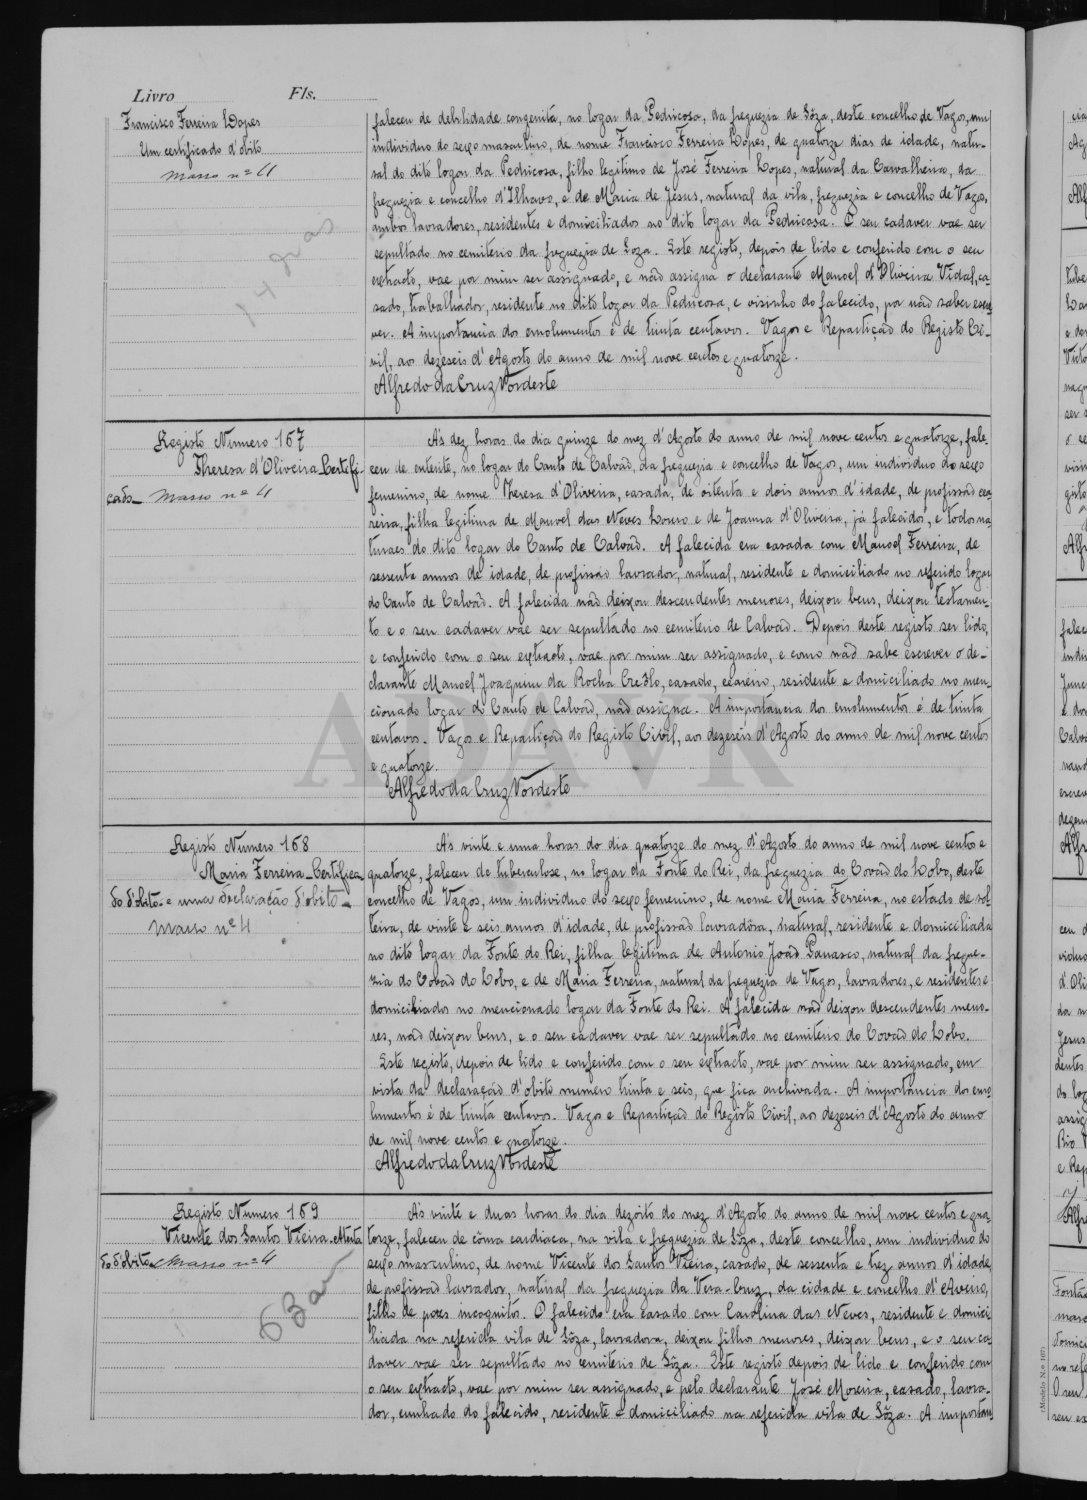 Livro Fls.
Francisco Ferreira Lopes
Um certificado d'obito
Masso nº 4
14 dias
faleceu de debilidade congenita, no logar da Pedricosa, da freguezia de Sôza, deste concelho de Vagos, um
individuo do sexo masculino, de nome Francisco Ferreira Lopes, de quatorze dias de idade, natu-
ral do dito logar da Pedricosa, filho legitimo de José Ferreira Lopes, natural da Carvalheira, da
freguezia e concelho d'Ilhavo, e de Maria de Jesus, natural da vila, freguezia e concelho de Vagos,
ambos lavradores, residentes e domiciliados no dito logar da Pedricosa. O seu cadaver vae ser
sepultado no cemiterio da freguezia de Soza. Este registo, depois de lido e conferido com o seu
extracto, vae por mim ser assignado, e não assigna o declarante Manoel d'Oliveira Vidal, ca-
sado, trabalhador, residente no dito logar da Pedricosa, e visinho do falecido, por não saber escre
ver. A importancia dos emolumentos é de trinta centavos. Vagos e Repartição do Registo Ci-
vil, aos dezeseis d'Agosto do anno de mil nove centos e quatorze.
Alfredo da Cruz Nordeste
Registo Número 167
Theresa d'Oliveira Certifi-
cado Masso nº 4
A's dez horas do dia quinze do mez d'Agosto do anno de mil nove centos e quatorze, fale-
ceu de enterite, no logar do Canto de Calvão, da freguezia e concelho de Vagos, um individuo do sexo
femenino, de nome Theresa d'Oliveira, casada, de oitenta e dois annos d'idade, de profissão cea
reira, filha legitima de Manoel das Neves Louro e de Joanna d'Oliveira, já falecidos, e todos na
turaes do dito logar do Canto de Calvão. A falecida era casada com Manoel Ferreira, de
sessenta annos de idade, de profissão lavrador, natural, residente e domiciliado no referido logar
do Canto de Calvão. A falecida não deixou descendentes menores, deixou bens, deixou testamen-
to e o seu cadaver vae ser sepultado no cemiterio de Calvão. Depois deste registo ser lido,
e conferido com o seu extracto, vae por mim ser assignado, e como não sabe escrever o de-
clarante Manoel Joaquim da Rocha, casado, ceareiro, residente e domiciliado no men-
cionado logar do Canto de Calvão, não assigna. A importancia dos emolumentos é de trinta
centavos. Vagos e Repartição do Registo Civil, aos dezeseis d'Agosto do anno de mil nove centos
e quatorze.
Alfredo da Cruz Nordeste
ADAVR
Registo Número 168
Maria Ferreira Certifica-
do d'obito e uma declaração d'obito
Masso nº 4
A's vinte e uma horas do dia quatorze do mez d'Agosto do anno de mil nove centos e
quatorze, faleceu de tuberculose, no logar da Fonte do Rei, da freguezia do Covão do Lobo, deste
concelho de Vagos, um individuo do sexo femenino, de nome Maria Ferreira, no estado de sol
teira, de vinte e seis annos d'idade, de profissão lavradôra, natural, residente e domiciliada
no dito logar da Fonte do Rei, filha legitima de Antonio João Panasco, natural da fregue-
zia do Covão do Lobo, e de Maria Ferreira, natural da freguezia de Vagos, lavradores, e residentes e
domiciliados no mencionado logar da Fonte do Rei. A falecida não deixou descendentes meno-
res, não deixou bens, e o seu cadaver vae ser sepultado no cemiterio do Covão do Lobo.
Este registo, depois de lido e conferido com o seu extracto, vae por mim ser assignado, em
vista da declaração d'obito numero trinta e seis, que fica archivada. A importancia dos emo
lumentos é de trinta centavos. Vagos e Repartição do Registo Civil, aos dezeseis d'Agosto do anno
de mil nove centos e quatorze.
Alfredo da Cruz Nordeste
Registo Número 169
Vicente dos Santos Vieira Atesta
do d'obito Masso nº 4
63 an
A's vinte e duas horas do dia dezoito do mez d'Agosto do anno de mil nove centos e qua-
torze, faleceu de côma cardiaca, na vila e freguezia de Sôza, deste concelho, um individuo do
sexo masculino, de nome Vicente dos Santos Vieira, casado, de sessenta e trez annos d'idade,
de profissão lavrador, natural da freguezia da Vera-Cruz, da cidade e concelho d'Aveiro,
filho de paes incognitos. O falecido era casado com Carolina das Neves, residente e domici
liada na referida vila de Sôza, lavradora, deixou filhos menores, deixou bens, e o seu ca-
daver vae ser sepultado no cemiterio de Sôza. Este registo depois de lido e conferido com
o seu extracto, vae por mim ser assignado, e pelo declarante José Moreira, casado, lavra-
dor, cunhado do falecido, residente e domiciliado na referida vila de Sôza. A importan
(Modelo N.º 107)